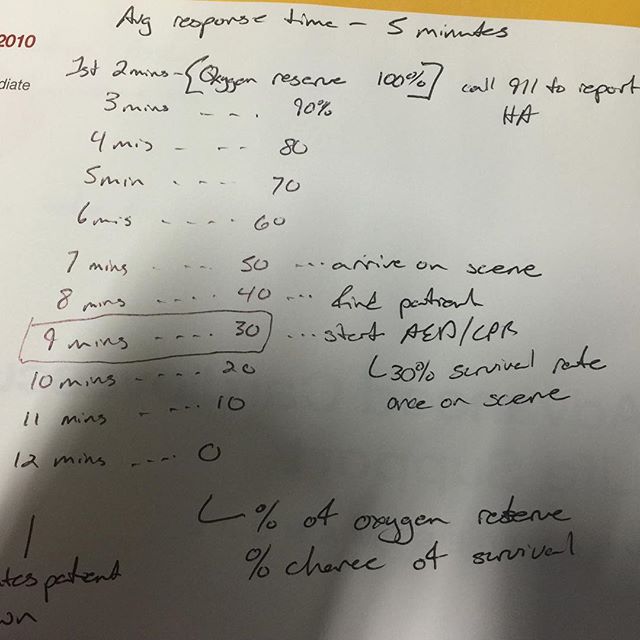 Avg response time - 5 minutes
2010
1st 2mins - [Oxygen reserve 100%] call 911 to report HA
diate
3 mins - - - . 90%
4 mis - - - 80
5min - - - - 70
6 mis - - - - - 60
7 mins - - - - 50 ... arrive on scene
8 mins - - - - 40 ... find patient
9 mins - - - - 30 ... start AED/CPR
10 mins - - - - 20 30% survival rate
11 mins - - - - 10 once on scene
12 mins - - - - 0
% of oxygen reserve
% chance of survival
tes patient
wn